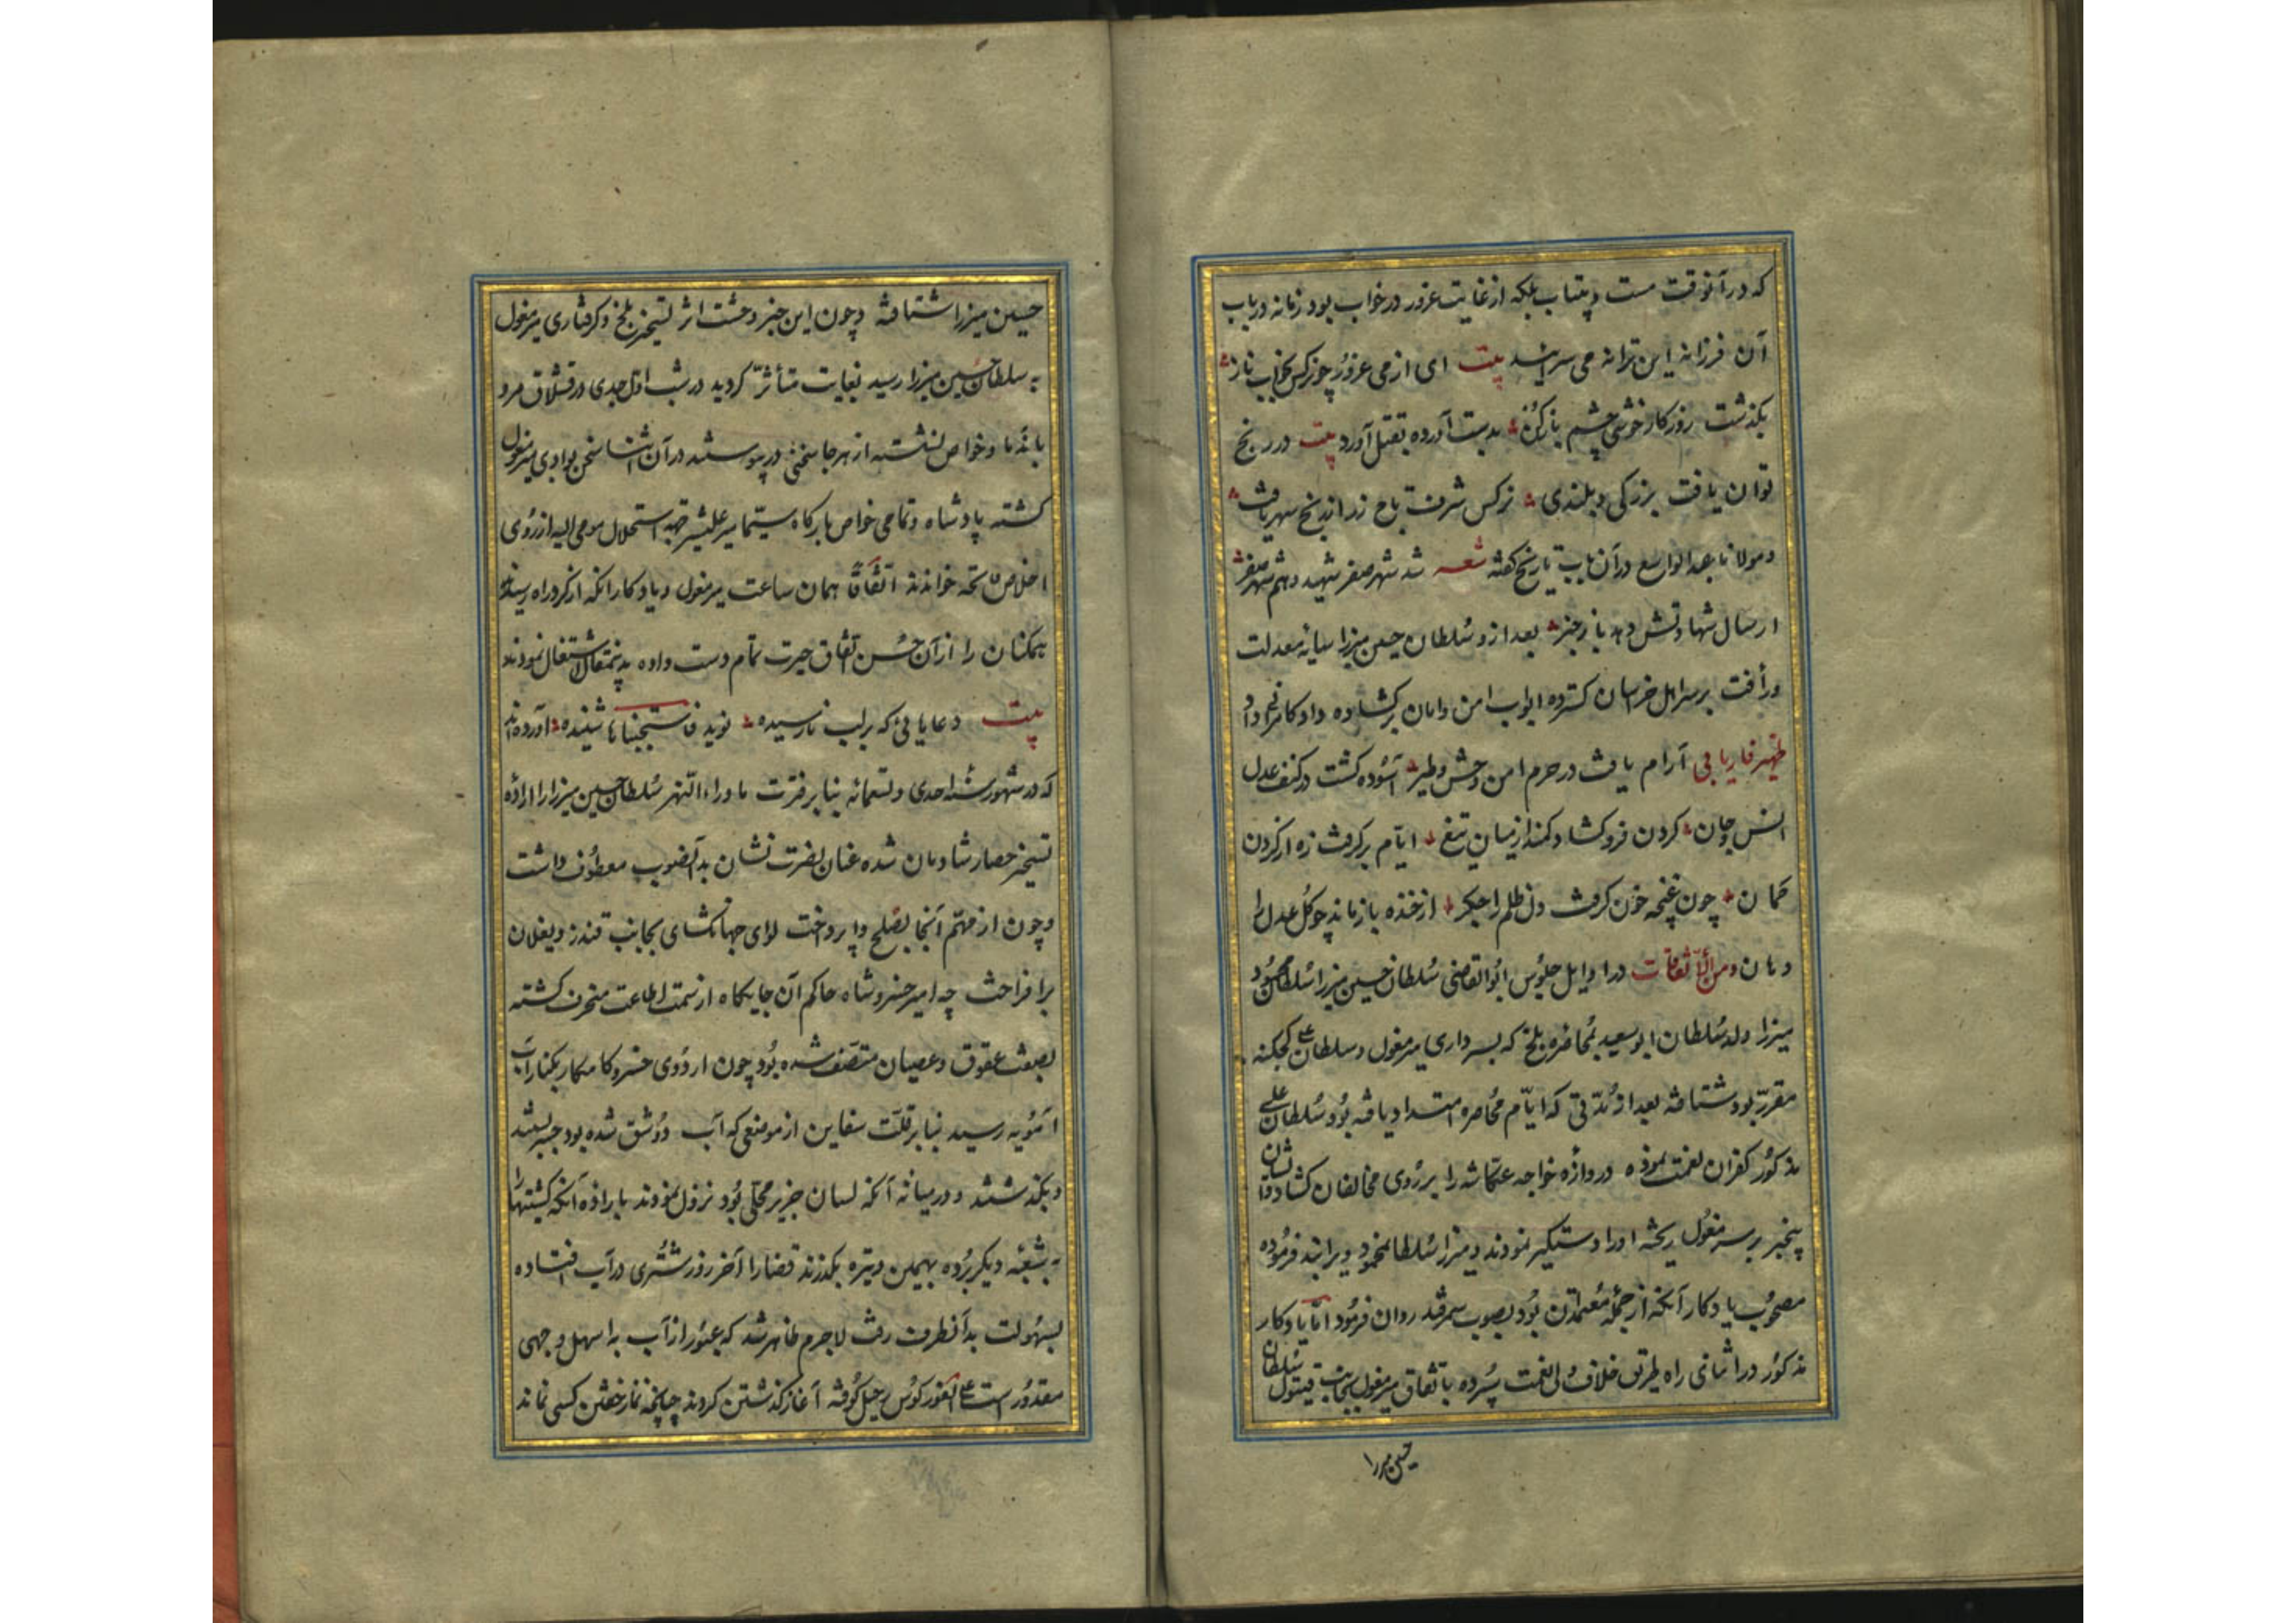 که در آنوقت مست و بیتاب بلکه از غایت غرور در خواب بود زمانه در باب
آن فرزانه این ترانه می سرایند بیت ای از می غرور چو نرکس بخواب ناز
بکذشت روزکار خوشی چشم باز کن بدست آورده بقتل آورد بیت در رنج
توان یافت بزرکی و بلندی نرکس شرف تاج زر از رنج سهر یافت
و مولانا عبدالواسع در آن باب تاریخ کفته شعر شد شهر صفر شهید و هم شهر صفر
از سال شهادتش دهد باز خبر بعد ازو سُلطان حسین میرزا سایه معدلت
و رأفت بر سر اهل خراسان کسترده ابواب امن و امان برکشاده داد کامرانی داد
ظهیر فاریابی آرام یافت در حرم امن وحش و طیر آسوده کشت در کنف عدل
انس و جان کردن فرو کشاد کمند از میان تیغ ایام برکرفت زه از کردن
کمان چون غنچه خون کرفت دل ظلم را جکر از خنده باز ماند چو کل عدل را
دهان و من الاتفاقات در اوایل جلوس ابوالغازی سُلطان حسین میرزا سُلطان محمود
میرزا ولد سُلطان ابوسعید بمُحاصره بلخ که بسرداری میرمغول و سلطان علی کجکنه
مقرر بود شتافته بعد از مُدتی که ایام مُحاصره امتداد یافته بُود سُلطان علی
مذکور کفران نعمت نموده دروازه خواجه عکاشه را بر رُوی مخالفان کشاد و ایشان
بیخبر بر سر میرمغول ریخته او را دستکیر نمودند و میرزا سُلطان محمود ویرا بند فرمُوده
مصحُوب یادکار آتکه از جُمله مُعتمدان بُود بصوب سمرقند روان فرمُود امّا یادکار
مذکور در اثنای راه طریق خلاف ولی نعمت سپُرده باتفاق میرمغول بجانب قیتول سُلطان
حسین میرزا
حسین میرزا شتافته و چون این خبر وحشت اثر تسخیر بلخ و کرفتاری میرمغول
به سلطان حسین میرزا رسید بغایت متأثر کردید در شب اول جدی در قشلاق مرو
با ندما و خواص نشسته از هر جا سخنی در پیوستند در آن اثنا سخن بوادی میرمغول
کشته پادشاه و تمامی خواص بارکاه سیّما میر علیشیر جهة استخلاص مومی الیه از رُوی
اخلاص فاتحه خواندند اتفاقاً همان ساعت میرمغول و یادکار اتکه از کرد راه رسیدند
همکنان را از آن حُسن اتفاق حیرت تمام دست داده به استغفال اشتغال نمودند
بیت دعایائی که بر لب نارسیده نوید فاستجبناها شنیده آورده‌اند
که در شهور سنه احدی و تسعمائه بنا بر فترت ماوراءالنّهر سُلطان حسین میرزا را اراده
تسخیر حصار شادمان شده عنان نصرت نشان بدانصوب معطُوف داشت
و چون از مهّم آنجا بصُلح وا پرداخت لوای جهانکشای بجانب قندز و بغلان
برافراخت چه امیر خسروشاه حاکم آن جایکاه از سمت اطاعت منحرف کشته
بصفت عقوق و عصیان متّصف شده بُود چون اردُوی خسرو کامکار بکنار آب
آمُویه رسید بنا بر قلت سفاین از موضعی که آب دو شق شده بود جسر بستند
و بکذشتند و در میانه آنکه لسان جزیر محلی بُود نزول نمودند باراده آنکه کشتیها را
به شُعبه دیکر بُرده بهمین وتیره بکذرند قضا را آخر روز شتُری در آب افتاده
بسهُولت بدآنطرف رفت لاجرم ظاهر شد که عبُور از آب باسهل وجهی
مقدُور است علی الفور کوُس رحیل کوُفته آغاز کذشتن کردند چنانچه نماز خفتن کسی نماند